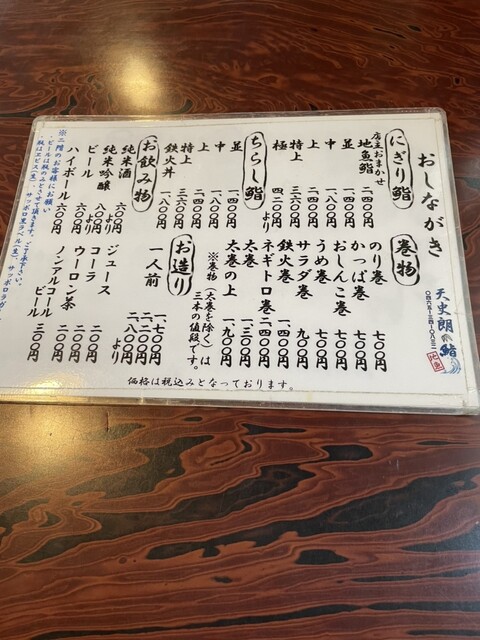 おしながき
天史朗鮨
にぎり鮨
店主おまかせ
地魚鮨 二四〇〇円
並 一四〇〇円
中 一八〇〇円
上 二四〇〇円
特上 三六〇〇円
極 四二〇〇円より
ちらし鮨
並 一四〇〇円
中 一八〇〇円
上 二四〇〇円
特上 三六〇〇円
鉄火丼
お飲み物
純米酒 六〇〇円より
純米吟醸 八〇〇円より
ビール 六〇〇円
ハイボール 六〇〇円
※二階のお客様にお願い
・ビールは瓶のみとさせて頂きます。ご了承下さい。
巻物
のり巻 七〇〇円
かっぱ巻 七〇〇円
おしんこ巻 七〇〇円
うめ巻 七〇〇円
サラダ巻 九〇〇円
鉄火巻 一四〇〇円
ネギトロ巻 二四〇〇円
太巻 一三〇〇円
太巻の上 一九〇〇円
※巻物(太巻を除く)は
三本の値段です。
お造り
一人前 一七〇〇円
二二〇〇円
二八〇〇円より
ジュース 二〇〇円
コーラ 二〇〇円
ウーロン茶 二〇〇円
ノンアルコールビール 三〇〇円
価格は税込みとなっております。